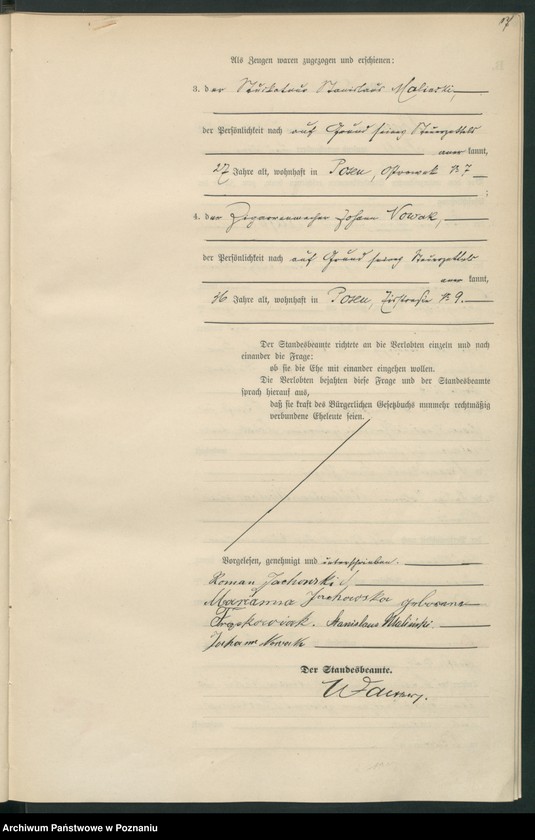 17
Als Zeugen waren zugezogen und erschienen:
3. der Stuckateur Stanislaus Malinski,
der Persönlichkeit nach auf Grund seines Steuerzettels
kannt,
27 Jahre alt, wohnhaft in Posen, Ostrowek № 7
;
4. der Zigarrenmacher Johann Nowak,
der Persönlichkeit nach auf Grund seines Steuerzettels
kannt,
36 Jahre alt, wohnhaft in Posen, № 9.
Der Standesbeamte richtete an die Verlobten einzeln und nach
einander die Frage:
ob sie die Ehe mit einander eingehen wollen.
Die Verlobten bejahten diese Frage und der Standesbeamte
sprach hierauf aus,
daß sie kraft des Bürgerlichen Gesetzbuchs nunmehr rechtmäßig
verbundene Eheleute seien.
Vorgelesen, genehmigt und unterschrieben.
Roman Jachowski
Marianna Jachowska geborene
Stanislaus Maliński.
Johann Nowak
Der Standesbeamte.
Archiwum Państwowe w Poznaniu